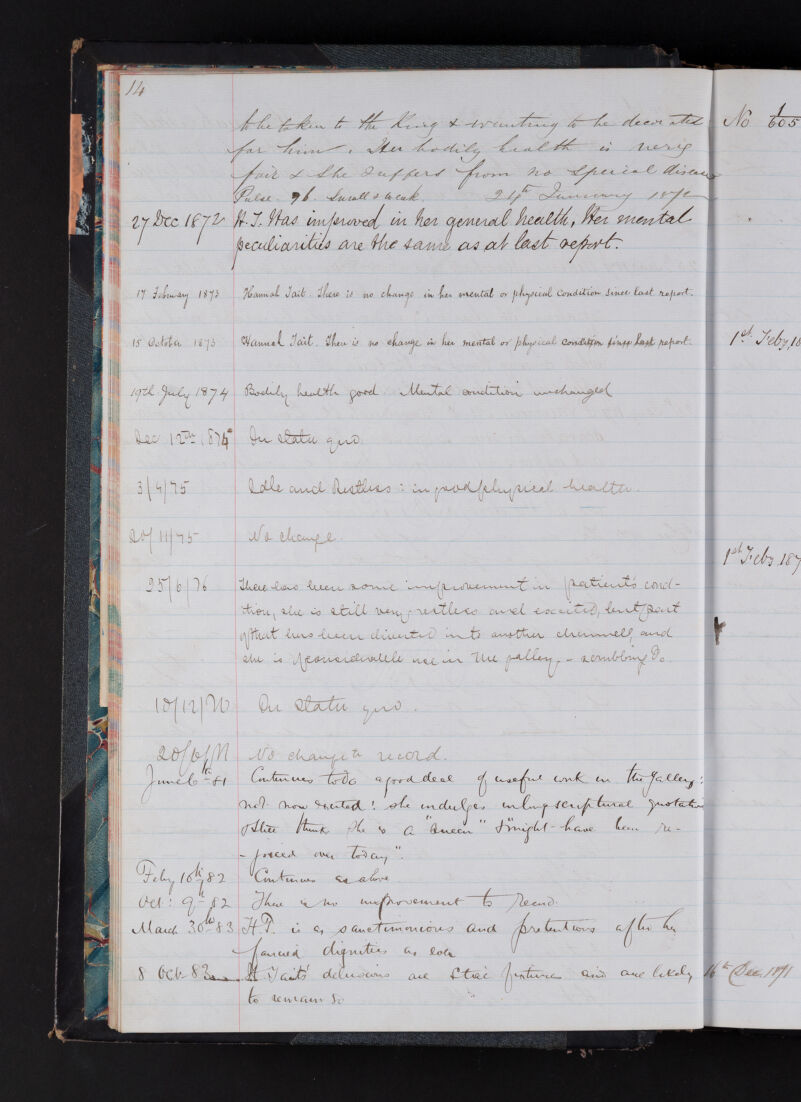 14
to be taken to the King & wanting to be decorated
for him. Her bodily health is very
fair & she suffers from no special disease
Pulse 96. Small & weak 24th January
27 Dec 1872 H.T. Has improved in her general health, Her mental
peculiarities are the same as at last report.
17 February 1873 Hannah Tait. There is no change in her mental or physical condition since last report.
15 October 1873 Hannah Tait. There is no change in her mental or physical condition since last report.
19th July 1874 Bodily health good Mental condition unchanged
Dec 12th 1874 In statu quo.
3/4/75 Idle and Restless: in good physical health.
20/11/75 No change.
25/6/76 There has been some improvement in patient's cond-
-ition, she is still very restless and excited, but part
of that has been diverted into another channell, and
she is of considerable use in the gallery, - scrubbing &c.
10/12/76 In statu quo.
No change to record.
June 6th 81 Continues to do a good deal of useful work in the gallery:
not now excited: she indulges in long scriptural quotations
think she is a "Queen" & might have been
over today".
Feby 10th 82 Continues as above
Oct: 9th 82 There is no improvement to record.
March 30th 83 H.T. is as sanctimonious and pretentious after her
fancied dignities as ever
8 Oct 83 H Tait's delusions are and are likely
to remain so
No 605
1st Feby, 18
1st Feby 187
16th Dec, 1871